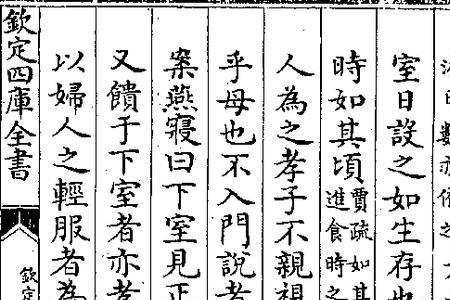 數亦依之
室日設之如生存也
時如其頃賈疏如其進食時之
人為之孝子不親
乎母也不入門說者
案燕寢曰下室見正
又饋于下室者亦
以婦人之輕服者為
欽定四庫全書
欽定